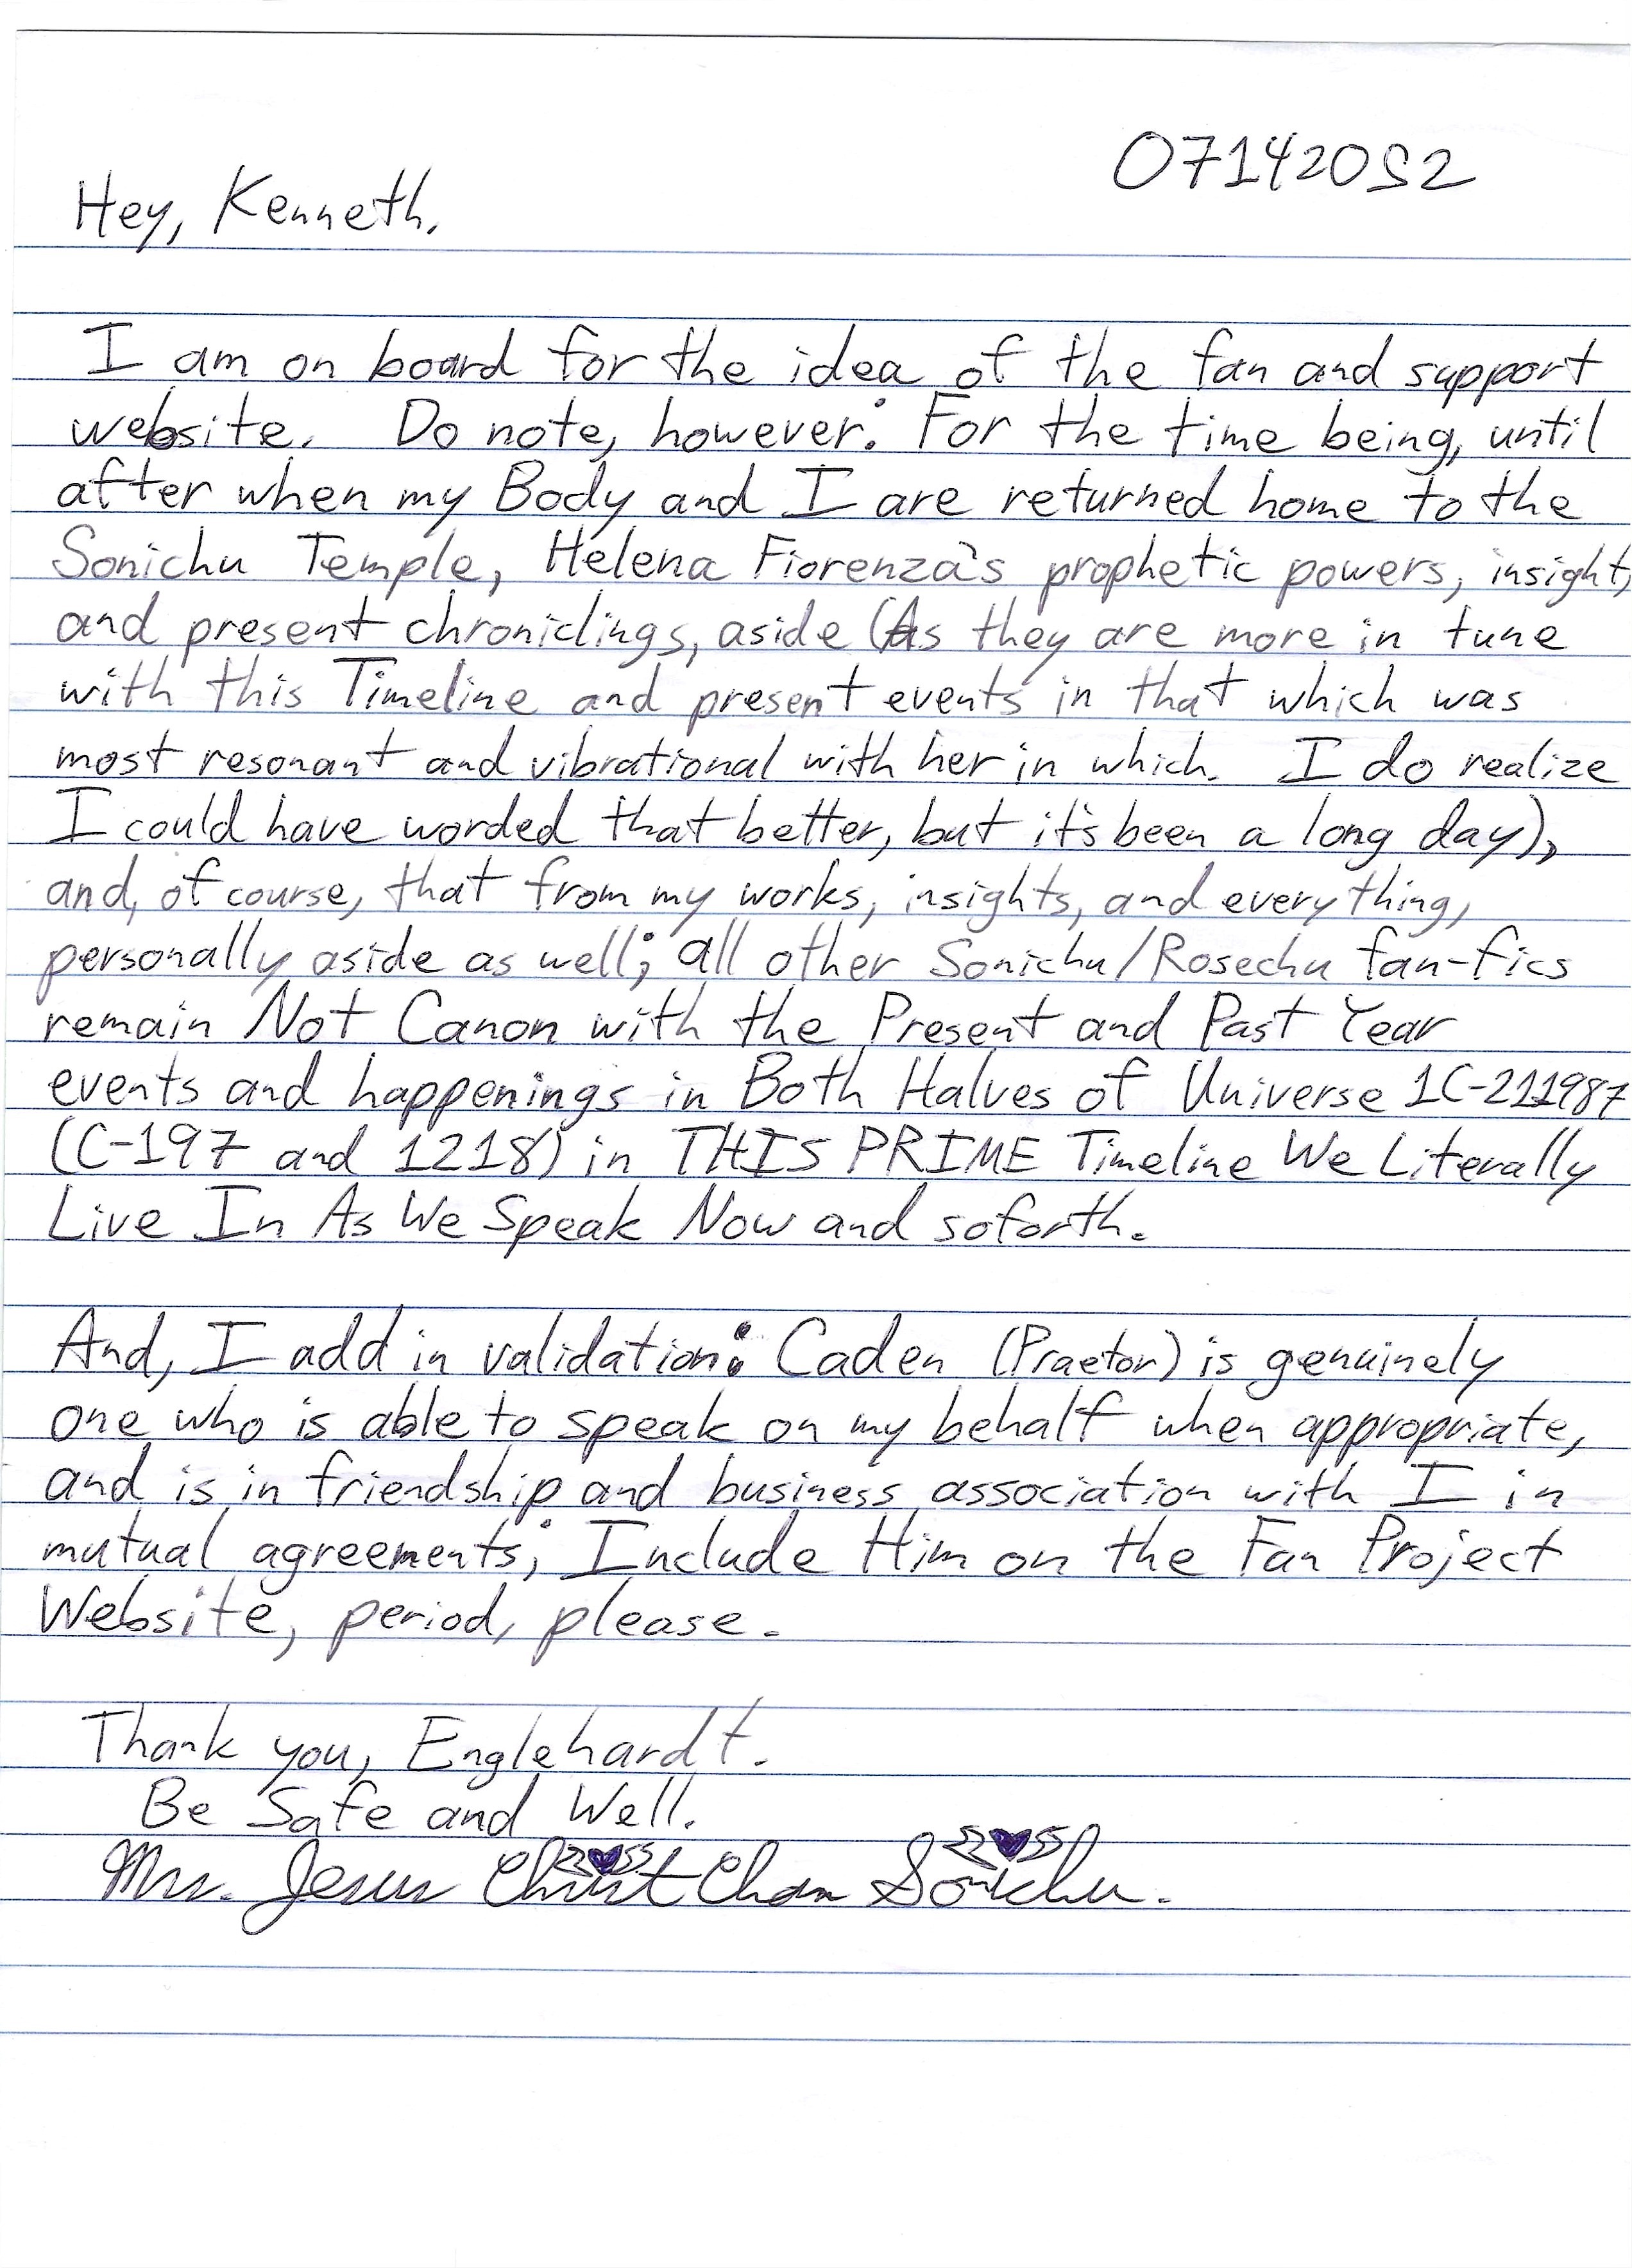 07142052
Hey, Kenneth.
I am on board for the idea of the fan and support
website. Do note, however: For the time being, until
after when my Body and I are returned home to the
Sonichu Temple, Helena Fiorenza's prophetic powers, insight,
and present chroniclings, aside (As they are more in tune
with this Timeline and present events in that which was
most resonant and vibrational with her in which. I do realize
I could have worded that better, but it's been a long day),
and, of course, that from my works, insights, and everything,
personally aside as well; all other Sonichu/Rosechu fan-fics
remain Not Canon with the Present and Past Year
events and happenings in Both Halves of Universe 1C-211987
(C-197 and 1218) in THIS PRIME Timeline We Literally
Live In As We Speak Now and soforth.
And, I add in validation: Caden (Praetor) is genuinely
one who is able to speak on my behalf when appropriate,
and is in friendship and business association with I in
mutual agreements; Include Him on the Fan Project
Website, period, please.
Thank you, Englehardt.
Be Safe and Well.
Mrs. Jesus Christ Chan Sonichu.